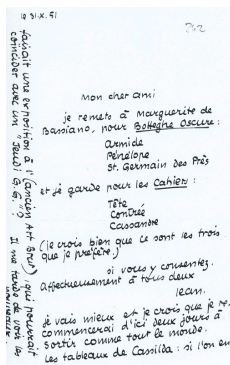 le 31.X.51
Mon cher ami
je remets à Marguerite de
Bassiano, pour Botteghe Oscure :
Armide
Pénélope
St. Germain des Prés
et je garde pour les Cahiers :
Tête
Contrée
Cassandre
(je crois bien que ce sont les trois
que je préfère)
si vous y consentez.
Affectueusement à tous deux
Jean.
je vais mieux et je crois que je re-
commencerai d'ici deux jours à
sortir comme tout le monde.
Les tableaux de Cassilda : si l'on en
faisait une exposition à l'(ancien Art Brut) qui pourrait
coïncider avec un "Jeudi G.G."? Il me tarde de voir les